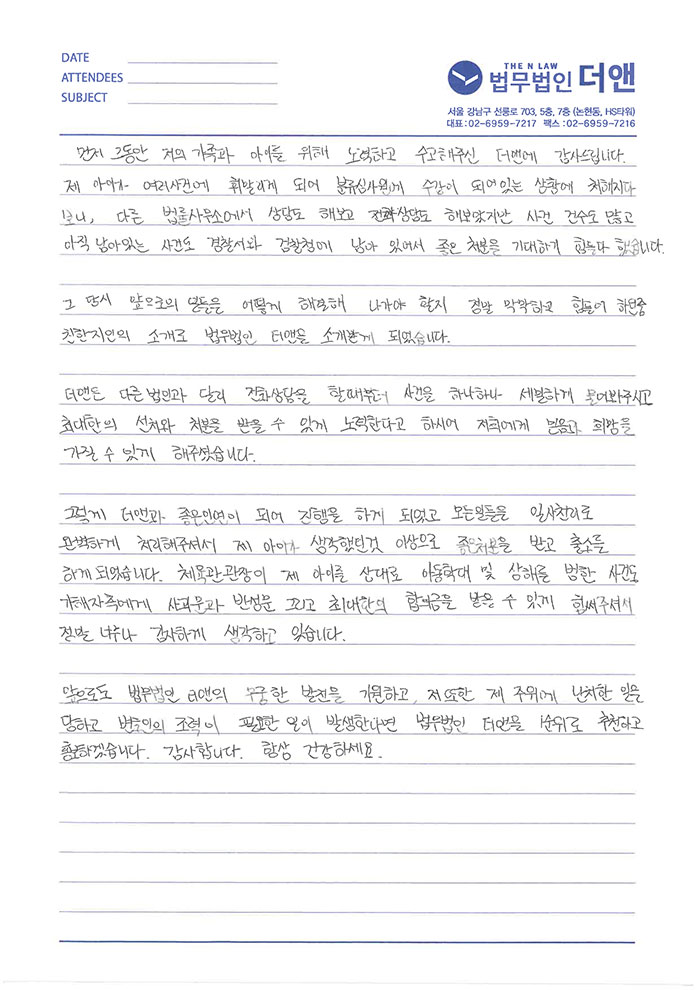 DATE
ATTENDEES
SUBJECT
THE N LAW
법무법인 더앤
서울 강남구 선릉로 703, 5층, 7층 (논현동, HS타워)
대표 : 02-6959-7217 팩스 : 02-6959-7216
먼저 그동안 저의 가족과 아이를 위해 노력하고 수고해주신 더앤에 감사드립니다.
제 아이가 여러사건에 휘말리게 되어 분류심사원에 수감이 되어있는 상황에 처해지다
보니, 다른 법률사무소에서 상담도 해보고 전화상담도 해보았지만 사건 건수도 많고
아직 남아있는 사건도 경찰서와 검찰청에 남아 있어서 좋은 처분을 기대하게 힘들다 했습니다.
그 당시 앞으로의 일들을 어떻게 해결해 나가야 할지 정말 막막하고 힘들어 하던중
친한지인의 소개로 법무법인 더앤을 소개받게 되었습니다.
더앤은 다른법인과 달리 전화상담을 할때부터 사건을 하나하나 세밀하게 물어봐주시고
최대한의 선처와 처분을 받을 수 있게 노력한다고 하시어 저희에게 믿음과 희망을
가질 수 있게 해주셨습니다.
그렇게 더앤과 좋은인연이 되어 진행을 하게 되었고 모든일들을 일사천리로
완벽하게 처리해주셔서 제 아이가 생각했던것 이상으로 좋은처분을 받고 출소를
하게되었습니다. 체육관관장이 제 아이를 상대로 아동학대 및 상해를 범한 사건도
가해자측에게 사과문과 반성문 그리고 최대한의 합의금을 받을 수 있게 힘써주셔서
정말 너무나 감사하게 생각하고 있습니다.
앞으로도 법무법인 더앤의 무궁한 발전을 기원하고, 저또한 제 주위에 난처한 일을
당하고 변호인의 조력이 필요한 일이 발생한다면 법무법인 더앤을 순위로 추천하고
홍보하겠습니다. 감사합니다. 항상 건강하세요.